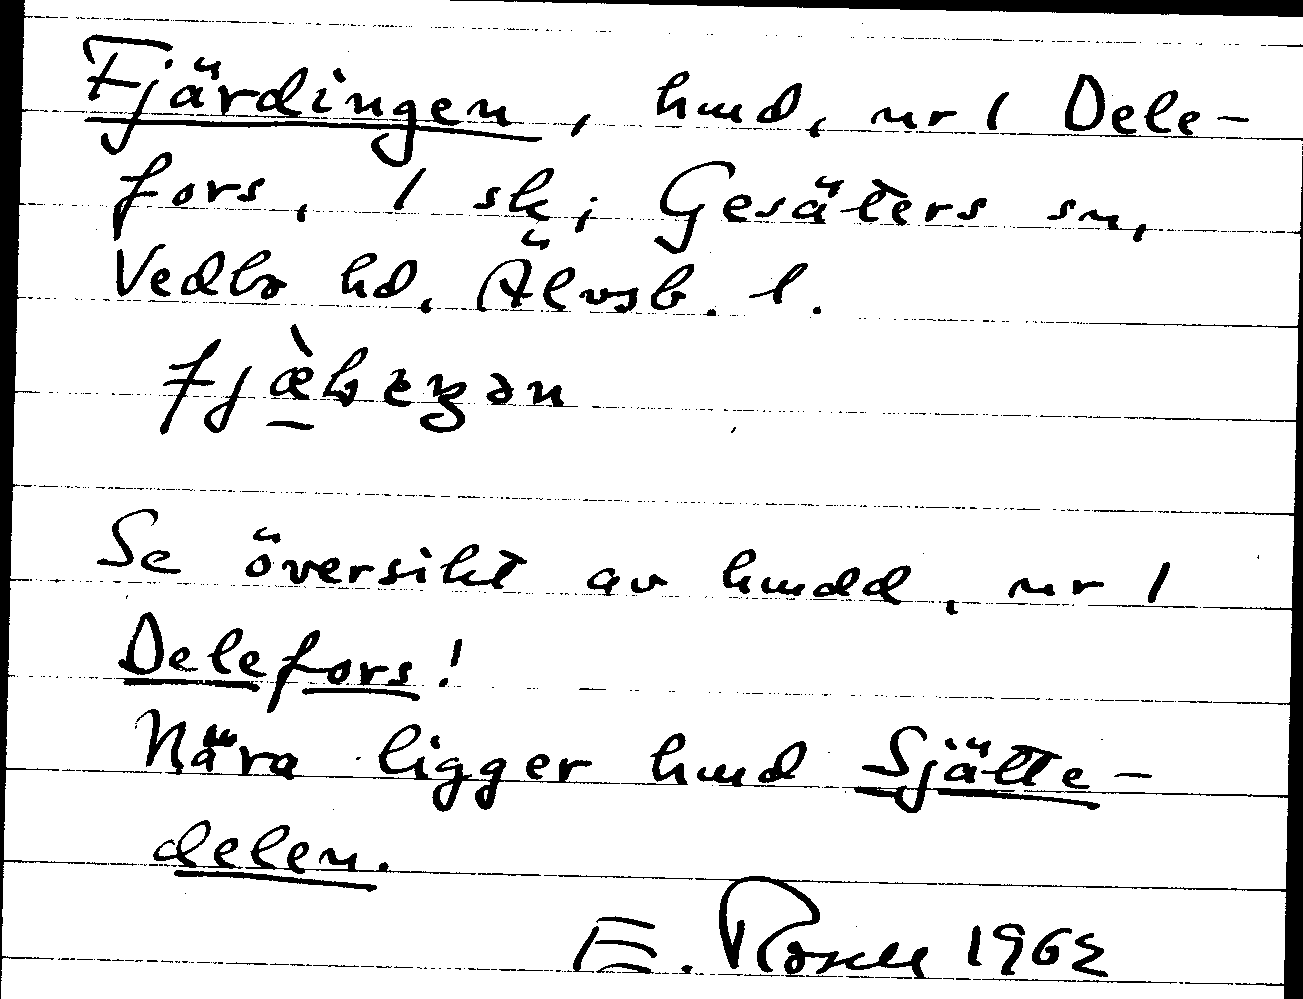 Fjärdingen, hmd, nr 1 Dele-
fors, 1 sk; Gesäters sn,
Vedbo hd, Älvsb. l.
Se översikt av hmdd, nr 1
Delefors!
Nära ligger hmd Sjätte-
delen.
E. 1962